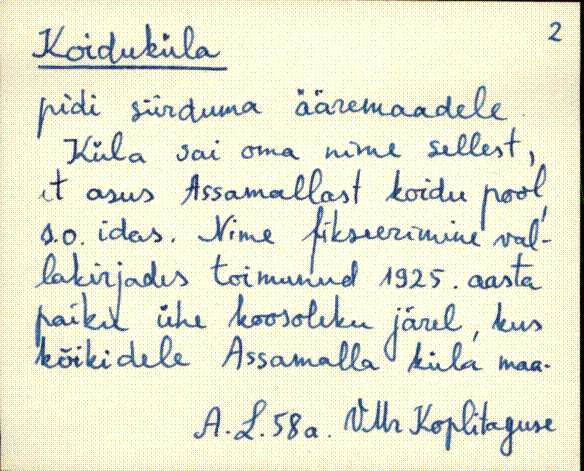 2
Koiduküla
pidi siirduma ääremaadele
Küla sai oma nime sellest,
et asus Assamallast koidu pool,
s.o. idas. Nime fikseerimine val-
lakirjades toimunud 1925. aasta
paiku ühe koosoleku järel, kus
kõikidele Assamalla küla maa-
A.L. 58a. VMr Koplitaguse